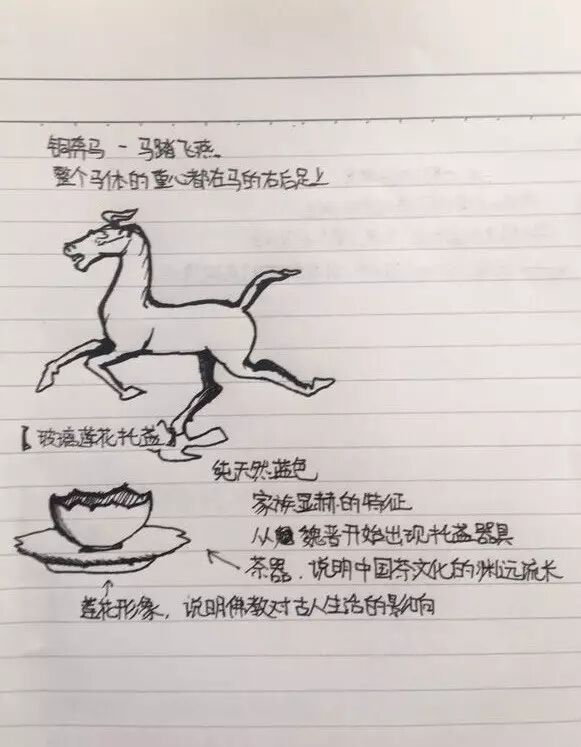 铜奔马 - 马踏飞燕
整个马体的重心都在马的右后足上
【玻璃莲花托盏】
纯天然蓝色
家族显赫的特征
从魏晋开始出现托盏器具
茶器，说明中国茶文化的渊远流长
莲花形象，说明佛教对古人生活的影响